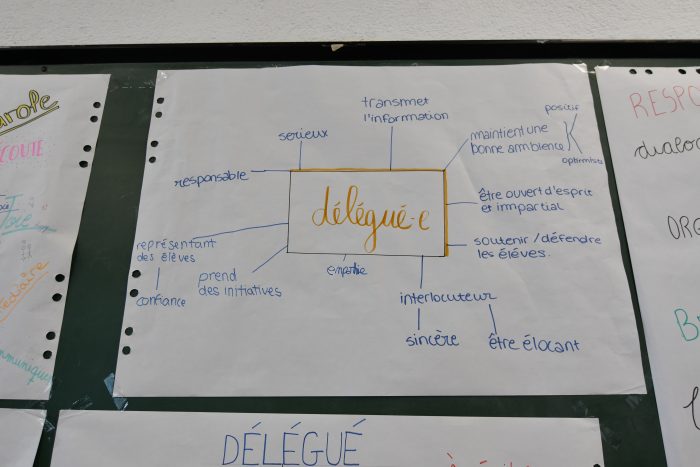 transmet
l'information
serieux
positif
maintient une
bonne ambience
optimiste
responsable
délégué-e
être ouvert d'esprit
et impartial
représentant
des élèves
soutenir / défendre
les élèves.
prend
des initiatives
confiance
interlocuteur
sincère
être élocant
DÉLÉGUÉ
arole
COUTE
RESPO
dialo
ORG